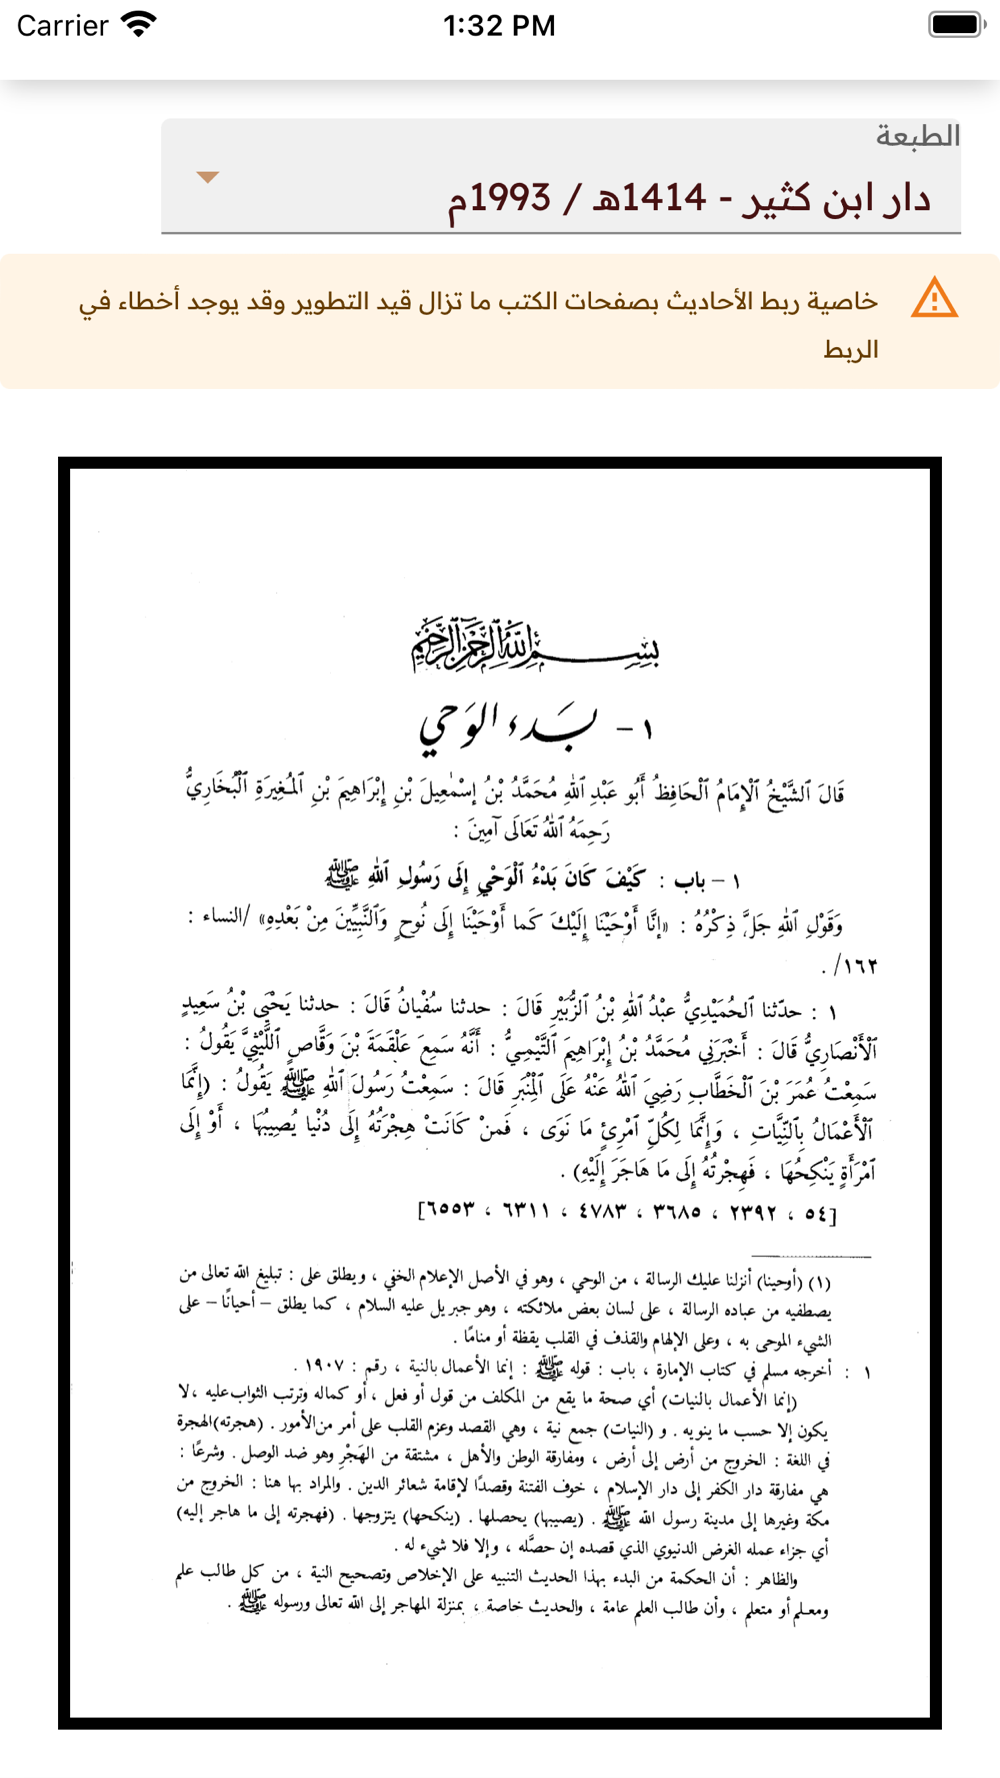 Carrier 1:32 PM
الطبعة
دار ابن كثير - 1414هـ / 1993م
خاصية ربط الأحاديث بصفحات الكتب ما تزال قيد التطوير وقد يوجد أخطاء في
الربط
بِسْمِ ٱللَّهِ ٱلرَّحْمَٰنِ ٱلرَّحِيمِ
١ - بَدء الوَحي
قَالَ ٱلشَّيْخُ ٱلْإِمَامُ ٱلْحَافِظُ أَبُو عَبْدِ ٱللهِ مُحَمَّدُ بْنُ إِسْمٰعِيلَ بْنِ إِبْرَاهِيمَ بْنِ ٱلْمُغِيرَةِ ٱلْبُخَارِيُّ
رَحِمَهُ ٱللهُ تَعَالَى آمِينَ :
١ - باب : كَيْفَ كَانَ بَدْءُ ٱلْوَحْيِ إِلَى رَسُولِ ٱللهِ ﷺ
وَقَوْلِ ٱللهِ جَلَّ ذِكْرُهُ : «إِنَّا أَوْحَيْنَا إِلَيْكَ كَما أَوْحَيْنَا إِلَى نُوحٍ وَٱلنَّبِيِّينَ مِنْ بَعْدِهِ» /النساء :
١٦٣/ .
١ : حدّثنا ٱلحُمَيْدِيُّ عَبْدُ ٱللهِ بْنُ ٱلزُّبَيْرِ قَالَ : حدثنا سُفْيانُ قَالَ : حدثنا يَحْيَى بْنُ سَعِيدٍ
ٱلْأَنْصَارِيُّ قَالَ : أَخْبَرَنِي مُحَمَّدُ بْنُ إِبْرَاهِيمَ ٱلتَّيْمِيُّ : أَنَّهُ سَمِعَ عَلْقَمَةَ بْنَ وَقَّاصٍ ٱللَّيْثِيَّ يَقُولُ :
سَمِعْتُ عُمَرَ بْنَ ٱلْخَطَّابِ رَضِيَ ٱللهُ عَنْهُ عَلَى ٱلْمِنْبَرِ قَالَ : سَمِعْتُ رَسُولَ ٱللهِ ﷺ يَقُولُ : (إِنَّمَا
ٱلْأَعْمَالُ بِٱلنِّيَّاتِ ، وَإِنَّمَا لِكُلِّ ٱمْرِئٍ مَا نَوَى ، فَمنْ كَانَتْ هِجْرَتُهُ إِلَى دُنْيا يُصِيبُهَا ، أَوْ إِلَى
ٱمْرَأَةٍ يَنْكِحُهَا ، فَهِجْرتُهُ إِلَى مَا هَاجَرَ إِلَيْهِ) .
[٥٤ ، ٢٣٩٢ ، ٣٦٨٥ ، ٤٧٨٣ ، ٦٣١١ ، ٦٥٥٣]
(١) (أوحينا) أنزلنا عليك الرسالة ، من الوحي ، وهو في الأصل الإعلام الخفي ، ويطلق على : تبليغ الله تعالى من
يصطفيه من عباده الرسالة ، على لسان بعض ملائكته ، وهو جبريل عليه السلام ، كما يطلق – أحيانًا – على
الشيء الموحى به ، وعلى الإلهام والقذف في القلب يقظة أو منامًا .
١ : أخرجه مسلم في كتاب الإمارة ، باب : قوله ﷺ : إنما الأعمال بالنية ، رقم : ١٩٠٧ .
(إنما الأعمال بالنيات) أي صحة ما يقع من المكلف من قول أو فعل ، أو كماله وترتب الثواب عليه ، لا
يكون إلا حسب ما ينويه . و (النيات) جمع نية ، وهي القصد وعزم القلب على أمر من الأمور . (هجرته) الهجرة
في اللغة : الخروج من أرض إلى أرض ، ومفارقة الوطن والأهل ، مشتقة من الهَجْرِ وهو ضد الوصل . وشرعًا :
هي مفارقة دار الكفر إلى دار الإسلام ، خوف الفتنة وقصدًا لإقامة شعائر الدين . والمراد بها هنا : الخروج من
مكة وغيرها إلى مدينة رسول الله ﷺ . (يصيبها) يحصلها . (ينكحها) يتزوجها . (فهجرته إلى ما هاجر إليه)
أي جزاء عمله الغرض الدنيوي الذي قصده إن حصَّله ، وإلا فلا شيء له .
والظاهر : أن الحكمة من البدء بهذا الحديث التنبيه على الإخلاص وتصحيح النية ، من كل طالب علم
ومعلم أو متعلم ، وأن طالب العلم عامة ، والحديث خاصة ، بمنزلة المهاجر إلى الله تعالى ورسوله ﷺ .